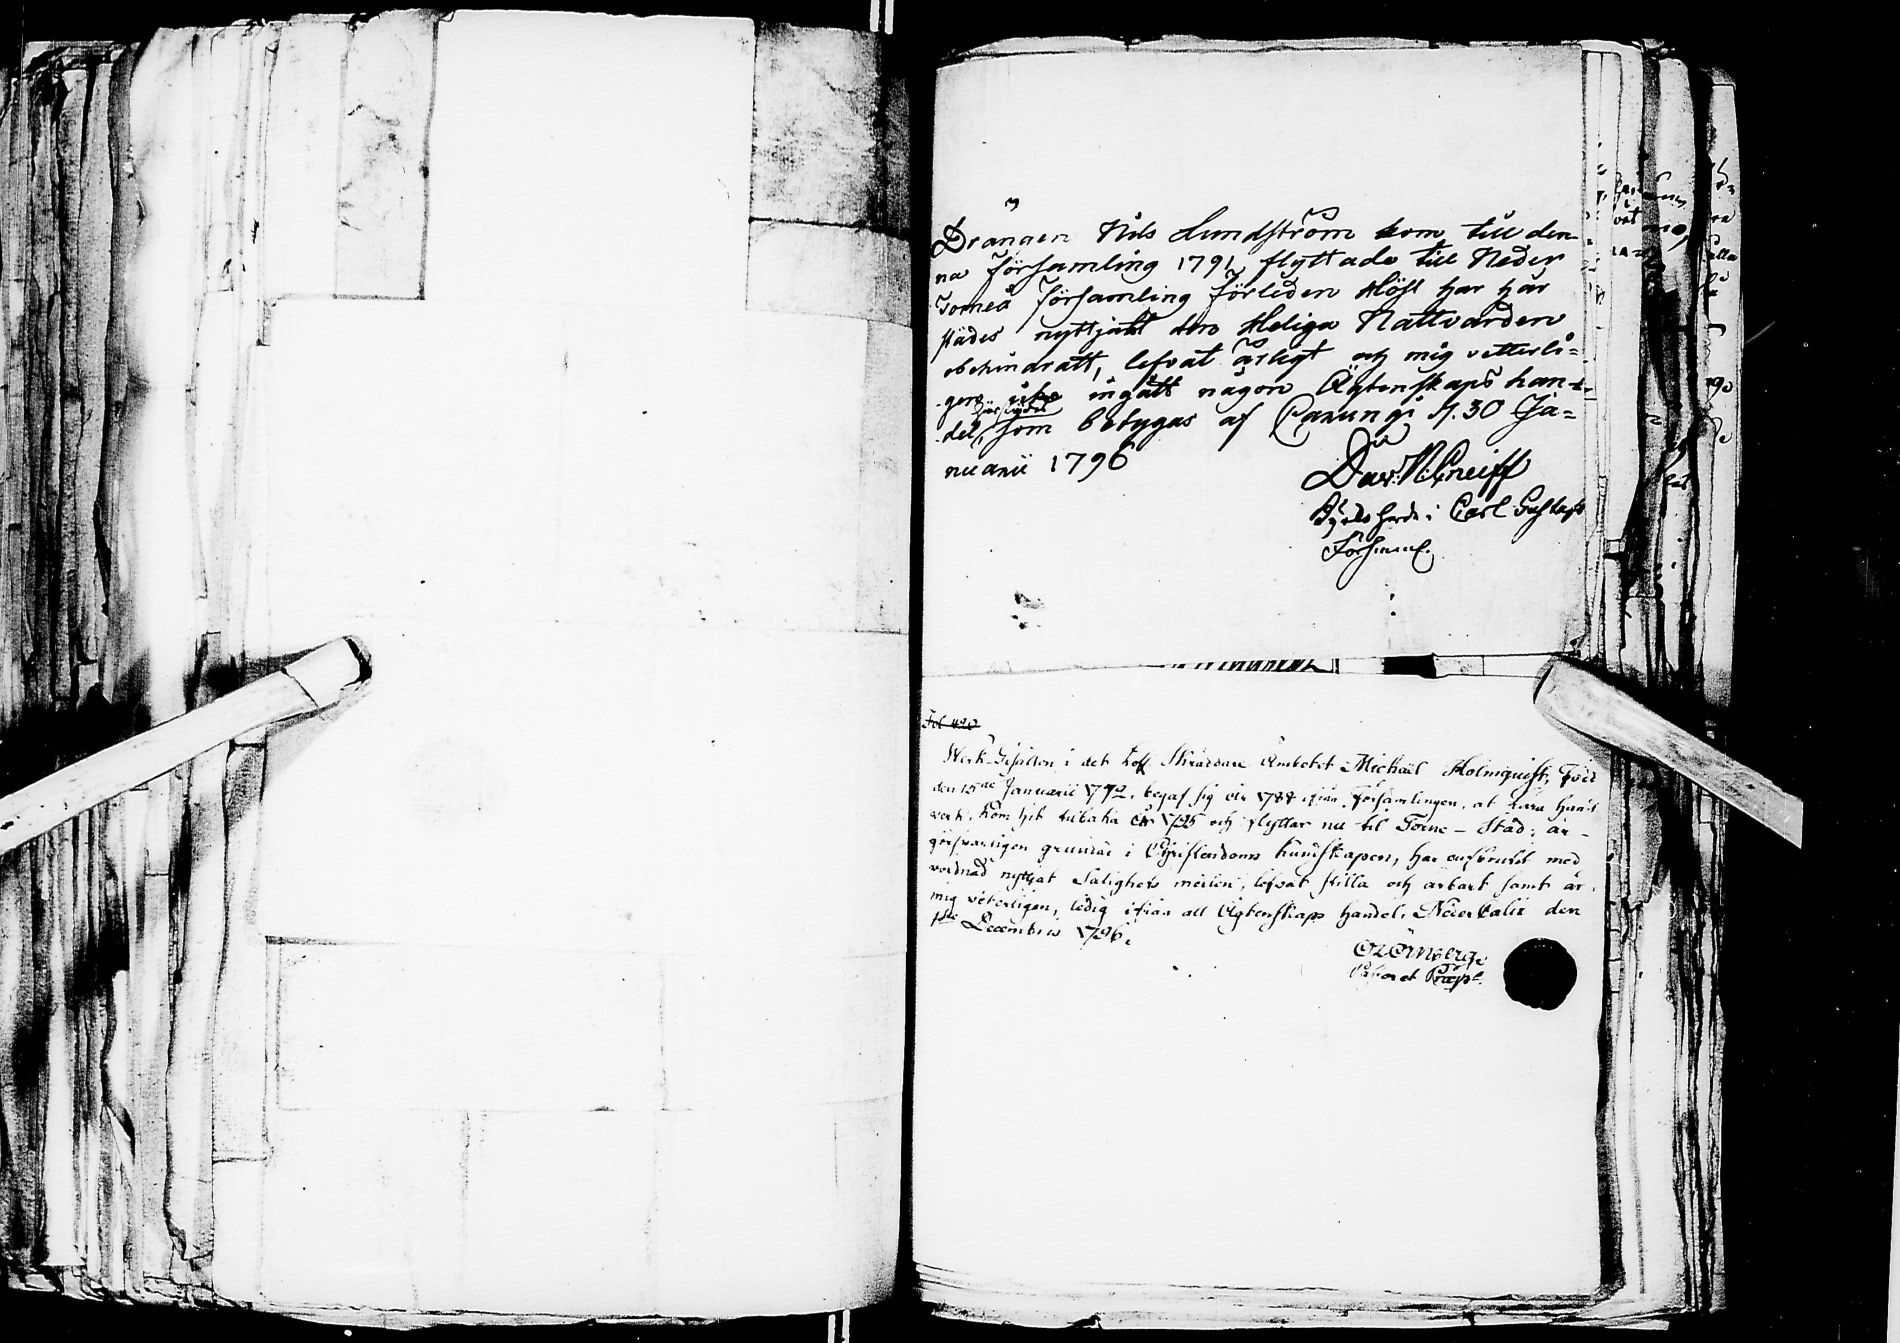 Drängen Nils Lundström kom till den-
na församling 1791, flyttade till Neder
Torneå församling förleden Höst har här
städes nyttjatt den Heliga Nattvarden
obehindratt, lefvat ärligt och mig vetterli=
gen icke ingått någon Ägtenskaps han-
härstädes
del, som betygas af Carungi d. 30 Ja=
nuarii 1796
Dav. N. Cneiff
i Carl Gustafs
Församl.
Fol 490
Werk-Gesällen i det Lofl Skräddare Embetet Michaël Holmquist, Född
den 15de Januarii 1772, begaf sig år 1788 ifrån Församlingen, at lära handt
verk, kom hit tilbaka år 1795 och flyttar nu til Torne-Stad; är
försvarligen grundad i Christendoms kundskapen, har oafbrutit med
vördnad nyttjat Salighets medlen, lefvat stilla och ärbart samt är,
mig veterligen, ledig ifrån all Ägtenskaps handel. Neder Calix den
1ste Decembris 1796.
Pastor et Præp.